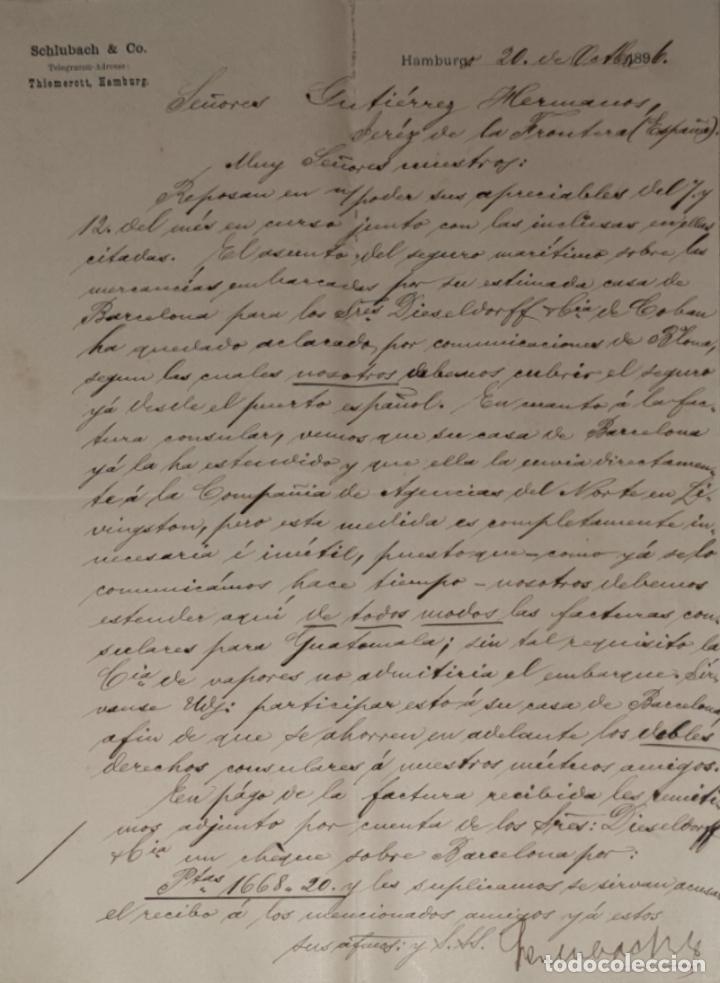 Schlubach & Co.
Telegramm-Adresse:
Thiemerott, Hamburg.
Hamburg, 20. de Octbre 1896.
Señores Gutiérrez Hermanos,
Jeréz de la Frontera (España).
Muy Señores nuestros:
Reposan en n/ poder sus apreciables del 7. y
12. del més en curso junto con las inclusas en ellas
citadas. El asunto del seguro marítimo sobre las
mercancías embarcadas por su estimada casa de
Barcelona para los Sres Dieseldorff & Cia de Coban
ha quedado aclarado, por comunicaciones de Blona,
segun las cuales nosotros debemos cubrir el seguro
yá desde el puerto español. En cuanto á la fac-
tura consular, vemos que su casa de Barcelona
yá la ha estendido y que ella la envia directamen-
te á la Compañia de Agencias del Norte en Li-
vingston, pero esta medida es completamente in-
necesaria é inútil, puesto que – como yá se lo
comunicámos hace tiempo – nosotros debemos
estender aquí de todos modos las facturas con-
sulares para Guatemala; sin tal requisito la
Cia de vapores no admitiria el embarque. Sír-
vanse Uds: participar esto á su casa de Barcelona
afin de que se ahorren en adelante los dobles
derechos consulares á nuestros mútuos amigos.
En págo de la factura recibida les remiti-
mos adjunto por cuenta de los Sres: Dieseldorff
& Cia un cheque sobre Barcelona por:
Ptas 1668.20. y les suplicamos se sirvan acusar
el recibo á los mencionados amigos yá estos
sus afmos: y S.S. Schlubach & Co
todocoleccion.net